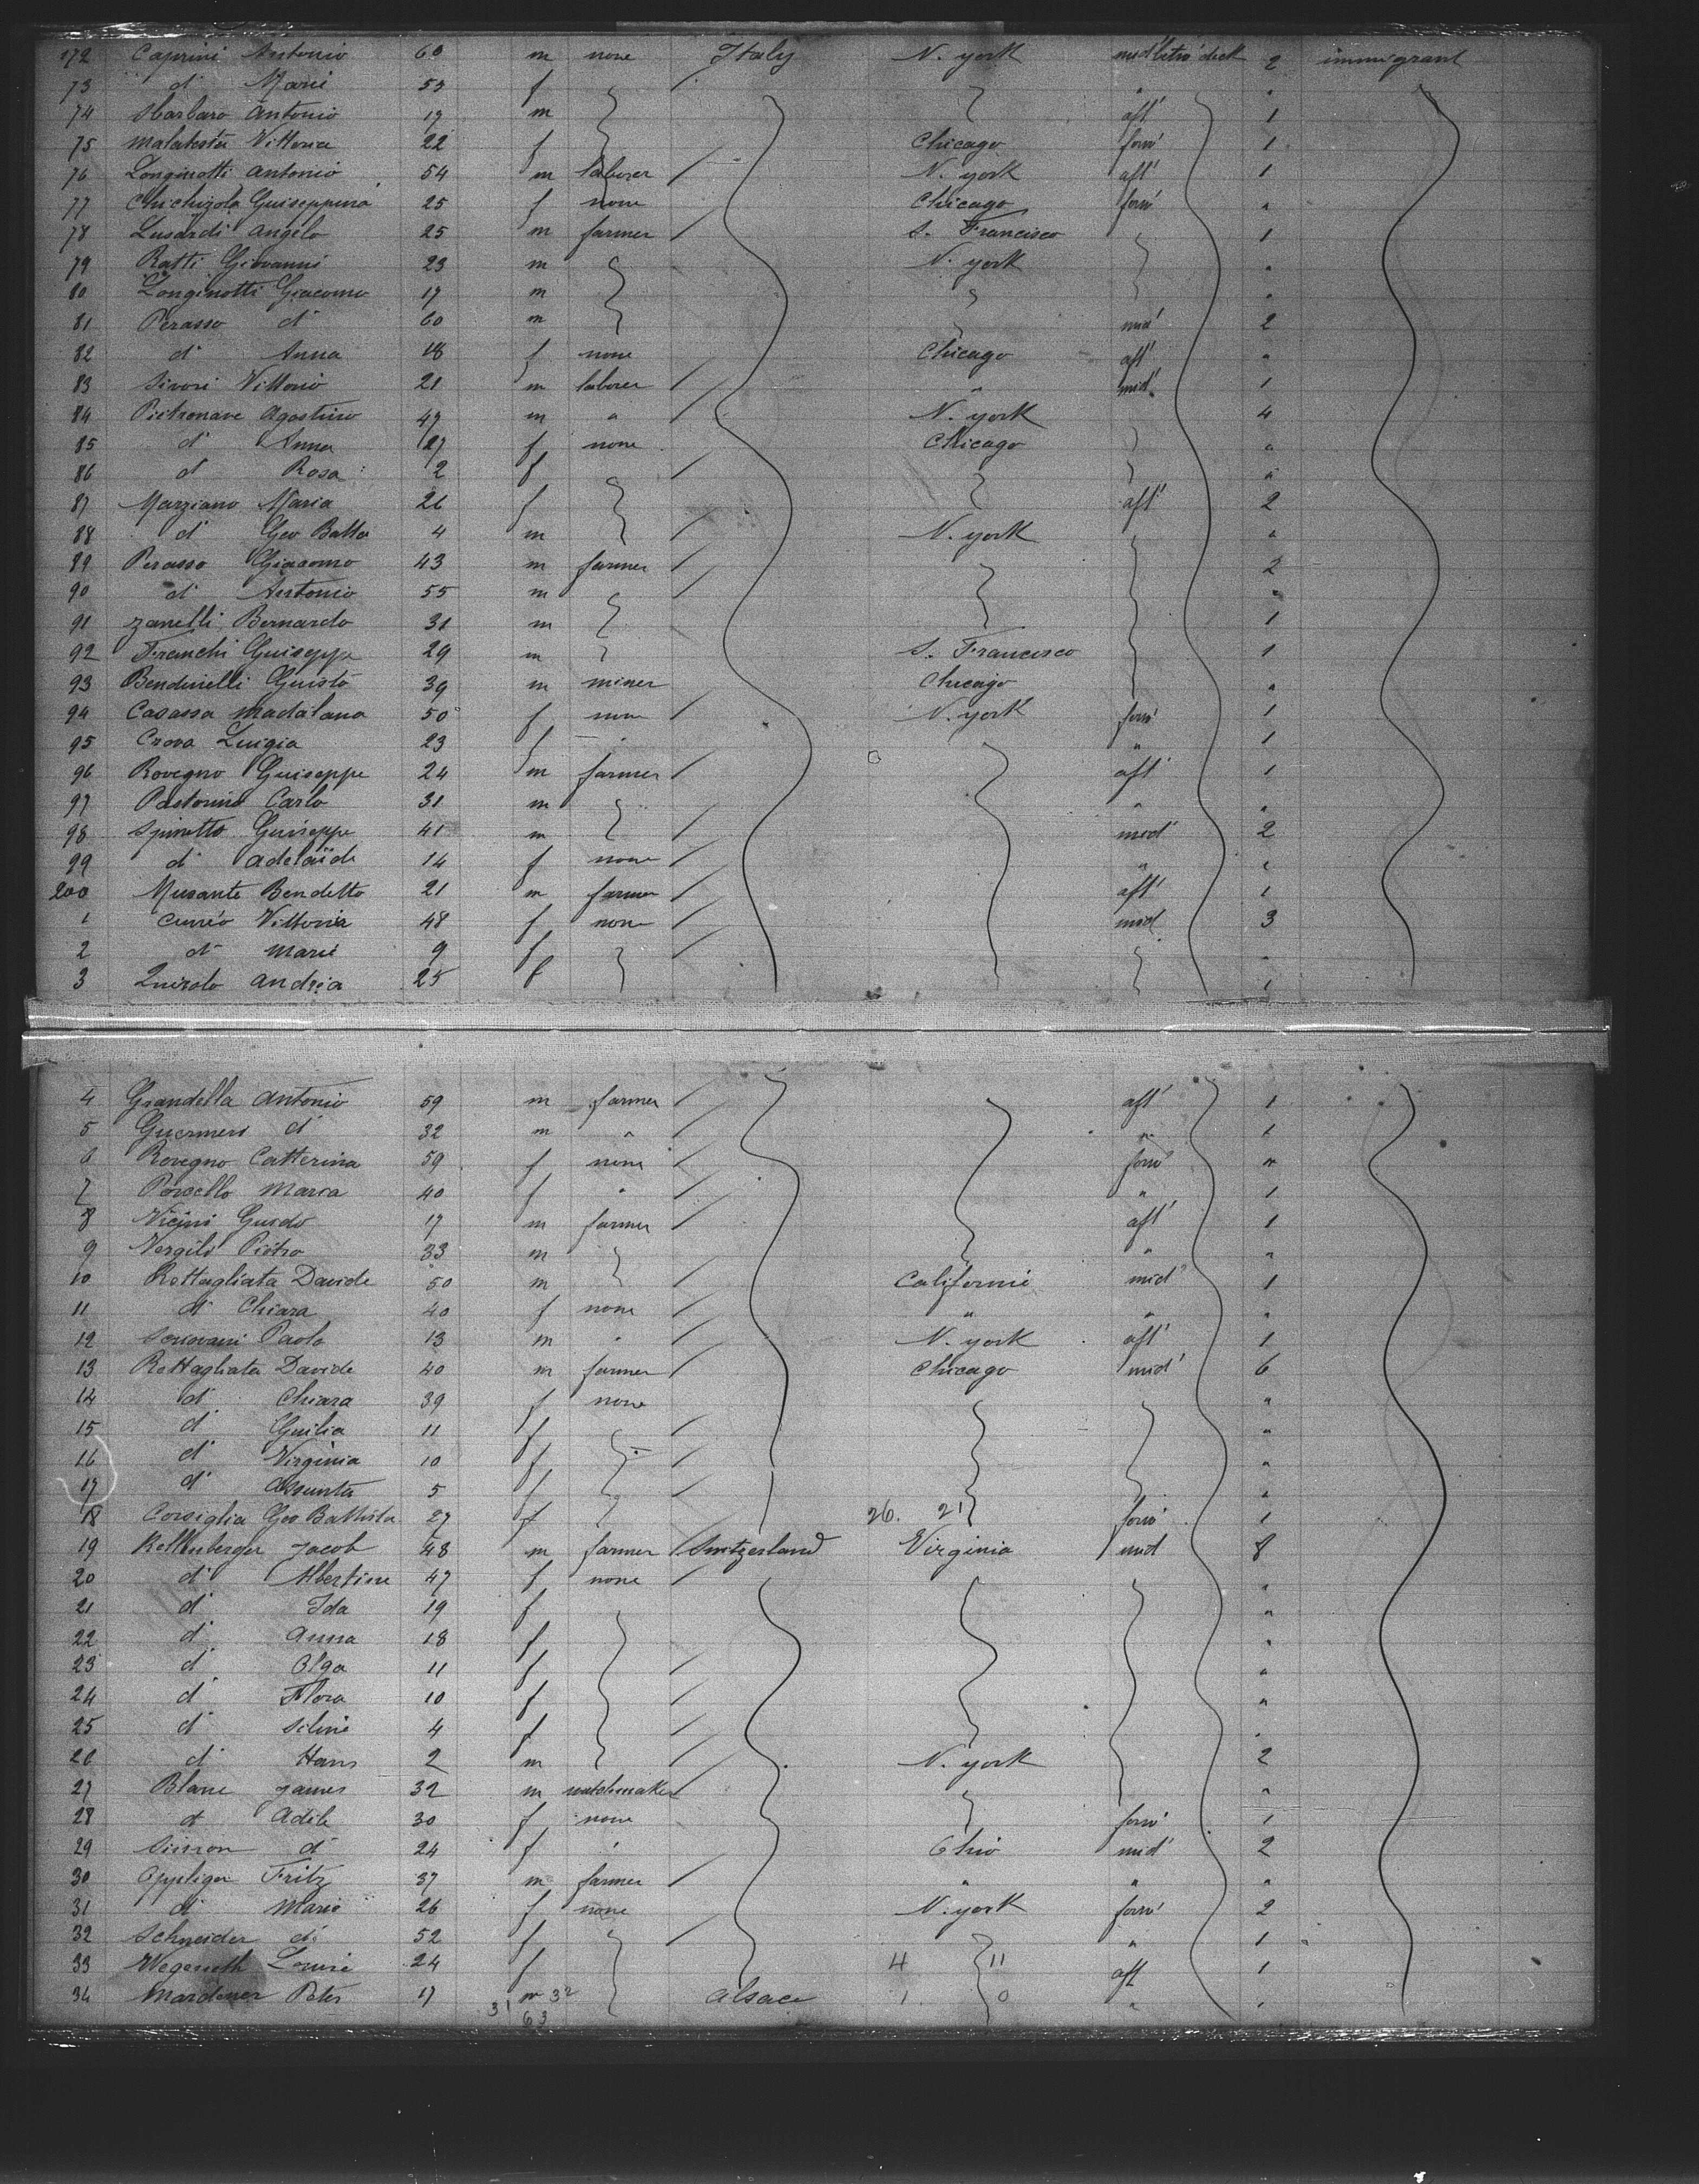 172 Caprini Antonio 60 m none Italy N. york 2 immigrant
73 d° Marie 53 f "
74 Sbarbaro Antonio 17 m aft' 1
75 Malatesta Vittoria 22 f Chicago forw' 1
76 Longinotti Antonio 54 m laborer N. york aft' 1
77 Chichizola Guiseppina 25 f none Chicago forw' "
78 Lusardi Angelo 25 m farmer S. Francisco 1
79 Ratti Giovanni 23 m N. york "
80 Longinotti Giacomo 17 m "
81 Perasso d° 60 m mid' 2
82 d° Anna 18 f none Chicago aft' "
83 Sivori Vittorio 21 m laborer " mid' 1
84 Pietronave Agostino 47 m " N. york 4
85 d° Anna 27 f none Chicago "
86 d° Rosa 2 f "
87 Marziano Maria 26 f aft' 2
88 d° Geo Batta 4 m N. york "
89 Perasso Giacomo 43 m farmer 2
90 d° Antonio 55 m "
91 Zanelli Bernardo 31 m 1
92 Franchi Guiseppe 29 m S. Francisco 1
93 Bendinelli Guisto 39 m miner Chicago "
94 Casassa Madalana 50 f none N. york forw' 1
95 Crova Luigia 23 f " " 1
96 Rovegno Guiseppe 24 m farmer aft' 1
97 Pastorino Carlo 31 m " "
98 Spinetto Guiseppe 41 m mid' 2
99 d° Adelaide 14 f none " "
200 Musante Bendetto 21 m farmer aft' 1
1 Cuneo Vittoria 48 f none mid 3
2 d° Marie 9 f "
3 Quirolo Andria 25 f 1
4 Grandella Antonio 59 m farmer aft' 1
5 d° 32 m " " 1
6 Rovegno Catterina 59 f none forw' "
7 Porcello Maria 40 f " " 1
8 Vicini Guido 17 m farmer aft' 1
9 Vergili Pietro 33 m " "
10 Rottagliata Davide 50 m Californie mid' 1
11 d° Chiara 40 f none " " "
12 Paolo 13 m " N. york aft' 1
13 Rottagliata Davide 40 m farmer Chicago mid' 6
14 d° Chiara 39 f none "
15 d° Guilia 11 f "
16 d° Virginia 10 f "
17 d° Assunta 5 f "
18 Corsiglia Geo Battista 27 f 26. 21 forw' 1
19 Kellenberger Jacob 48 m farmer Switzerland Virginia mid 8
20 d° Albertine 47 f none "
21 d° Ida 19 f "
22 d° Anna 18 f "
23 d° Olga 11 f "
24 d° Flora 10 f "
25 d° 4 f "
26 d° Hans 2 m N. york 2
27 Blanc James 32 m watchmaker "
28 d° Adile 30 f none forw' 1
29 Simon d° 24 f " Ohio mid' 2
30 Oppliger Fritz 37 m farmer " " "
31 d° Marie 26 f none N. york forw' 2
32 Schneider d° 52 f " 1
33 Louise 24 f 4 11 aft 1
34 Peter 17 m 32 Alsace 1 0 " "
31
63